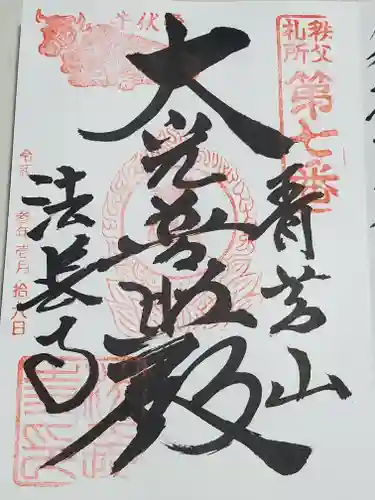 秩父
札所
第七番
青苔山
牛伏堂
大光普照殿
法長寺
令和参年壱月拾八日